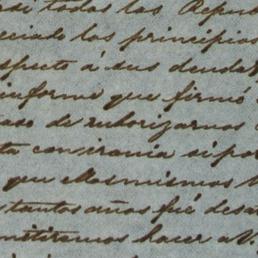 todas las Repub
ciado los principios
specto á sus deuda
informe que firmó
aso de autorizarnos
ta consirania si por
que Mosmismos
tantos años fué desa
mitiramos hacer a V.